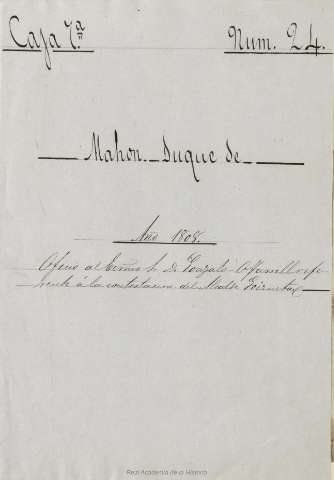 Caja 7.ª Num. 24.
Mahon. Duque de
Año 1808.
Oficio al Exmo Sr. Dn. Gonzalo O'Farrill refe
rente á la contestacion del
Real Academia de la Historia